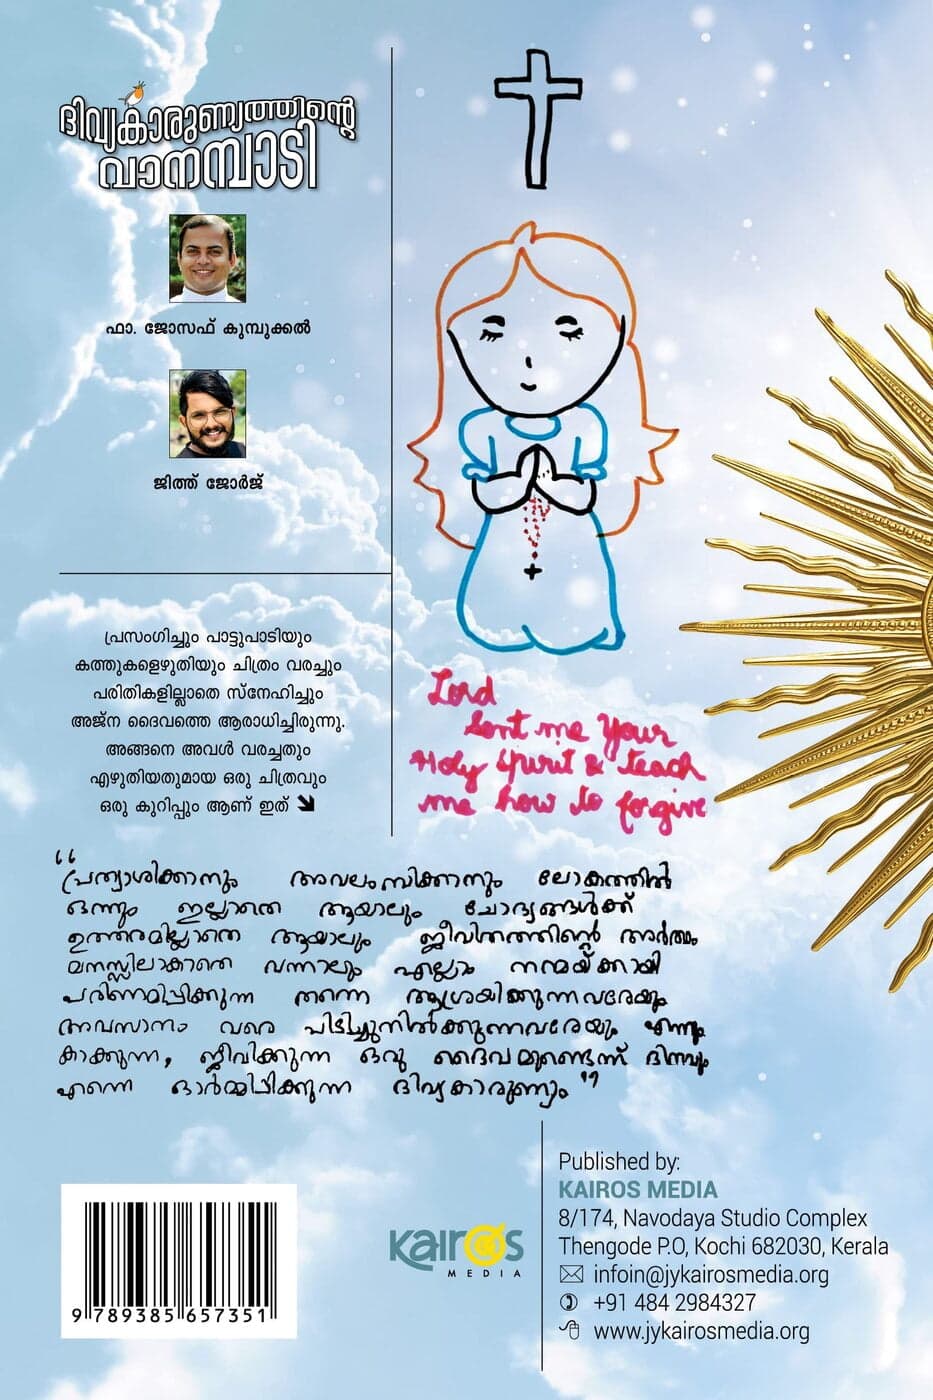 ദിവ്യകാരുണ്യത്തിന്റെ
വാനമ്പാടി
ഫാ. ജോസഫ് കുമ്പുക്കൽ
ജിത്ത് ജോർജ്
പ്രസംഗിച്ചും പാട്ടുപാടിയും
കത്തുകളെഴുതിയും ചിത്രം വരച്ചും
പരിതികളില്ലാതെ സ്നേഹിച്ചും
അജ്ന ദൈവത്തെ ആരാധിച്ചിരുന്നു.
അങ്ങനെ അവൾ വരച്ചതും
എഴുതിയതുമായ ഒരു ചിത്രവും
ഒരു കുറിപ്പും ആണ് ഇത്
Lord
Sent me Your
Holy Spirit & teach
me how to forgive
“പ്രത്യാശിക്കാനും അവലംമ്പിക്കാനും ലോകത്തിൽ
ഒന്നും ഇല്ലാതെ ആയാലും ചോദ്യങ്ങൾക്ക്
ഉത്തരമില്ലാതെ ആയാലും ജീവിതത്തിന്റെ അർത്ഥം
മനസ്സിലാകാതെ വന്നാലും എല്ലാം നന്മയ്ക്കായി
പരിണമിപ്പിക്കുന്ന തന്നെ ആശ്രയിക്കുന്നവരേയും
അവസാനം വരെ പിടിച്ചുനിൽക്കുന്നവരേയും എന്നും
കാക്കുന്ന, ജീവിക്കുന്ന ഒരു ദൈവമുണ്ടെന്ന് ദിനവും
എന്നെ ഓർമ്മിപ്പിക്കുന്ന ദിവ്യകാരുണ്യം”
9 789385 657351
kairos
MEDIA
Published by:
KAIROS MEDIA
8/174, Navodaya Studio Complex
Thengode P.O, Kochi 682030, Kerala
infoin@jykairosmedia.org
+91 484 2984327
www.jykairosmedia.org